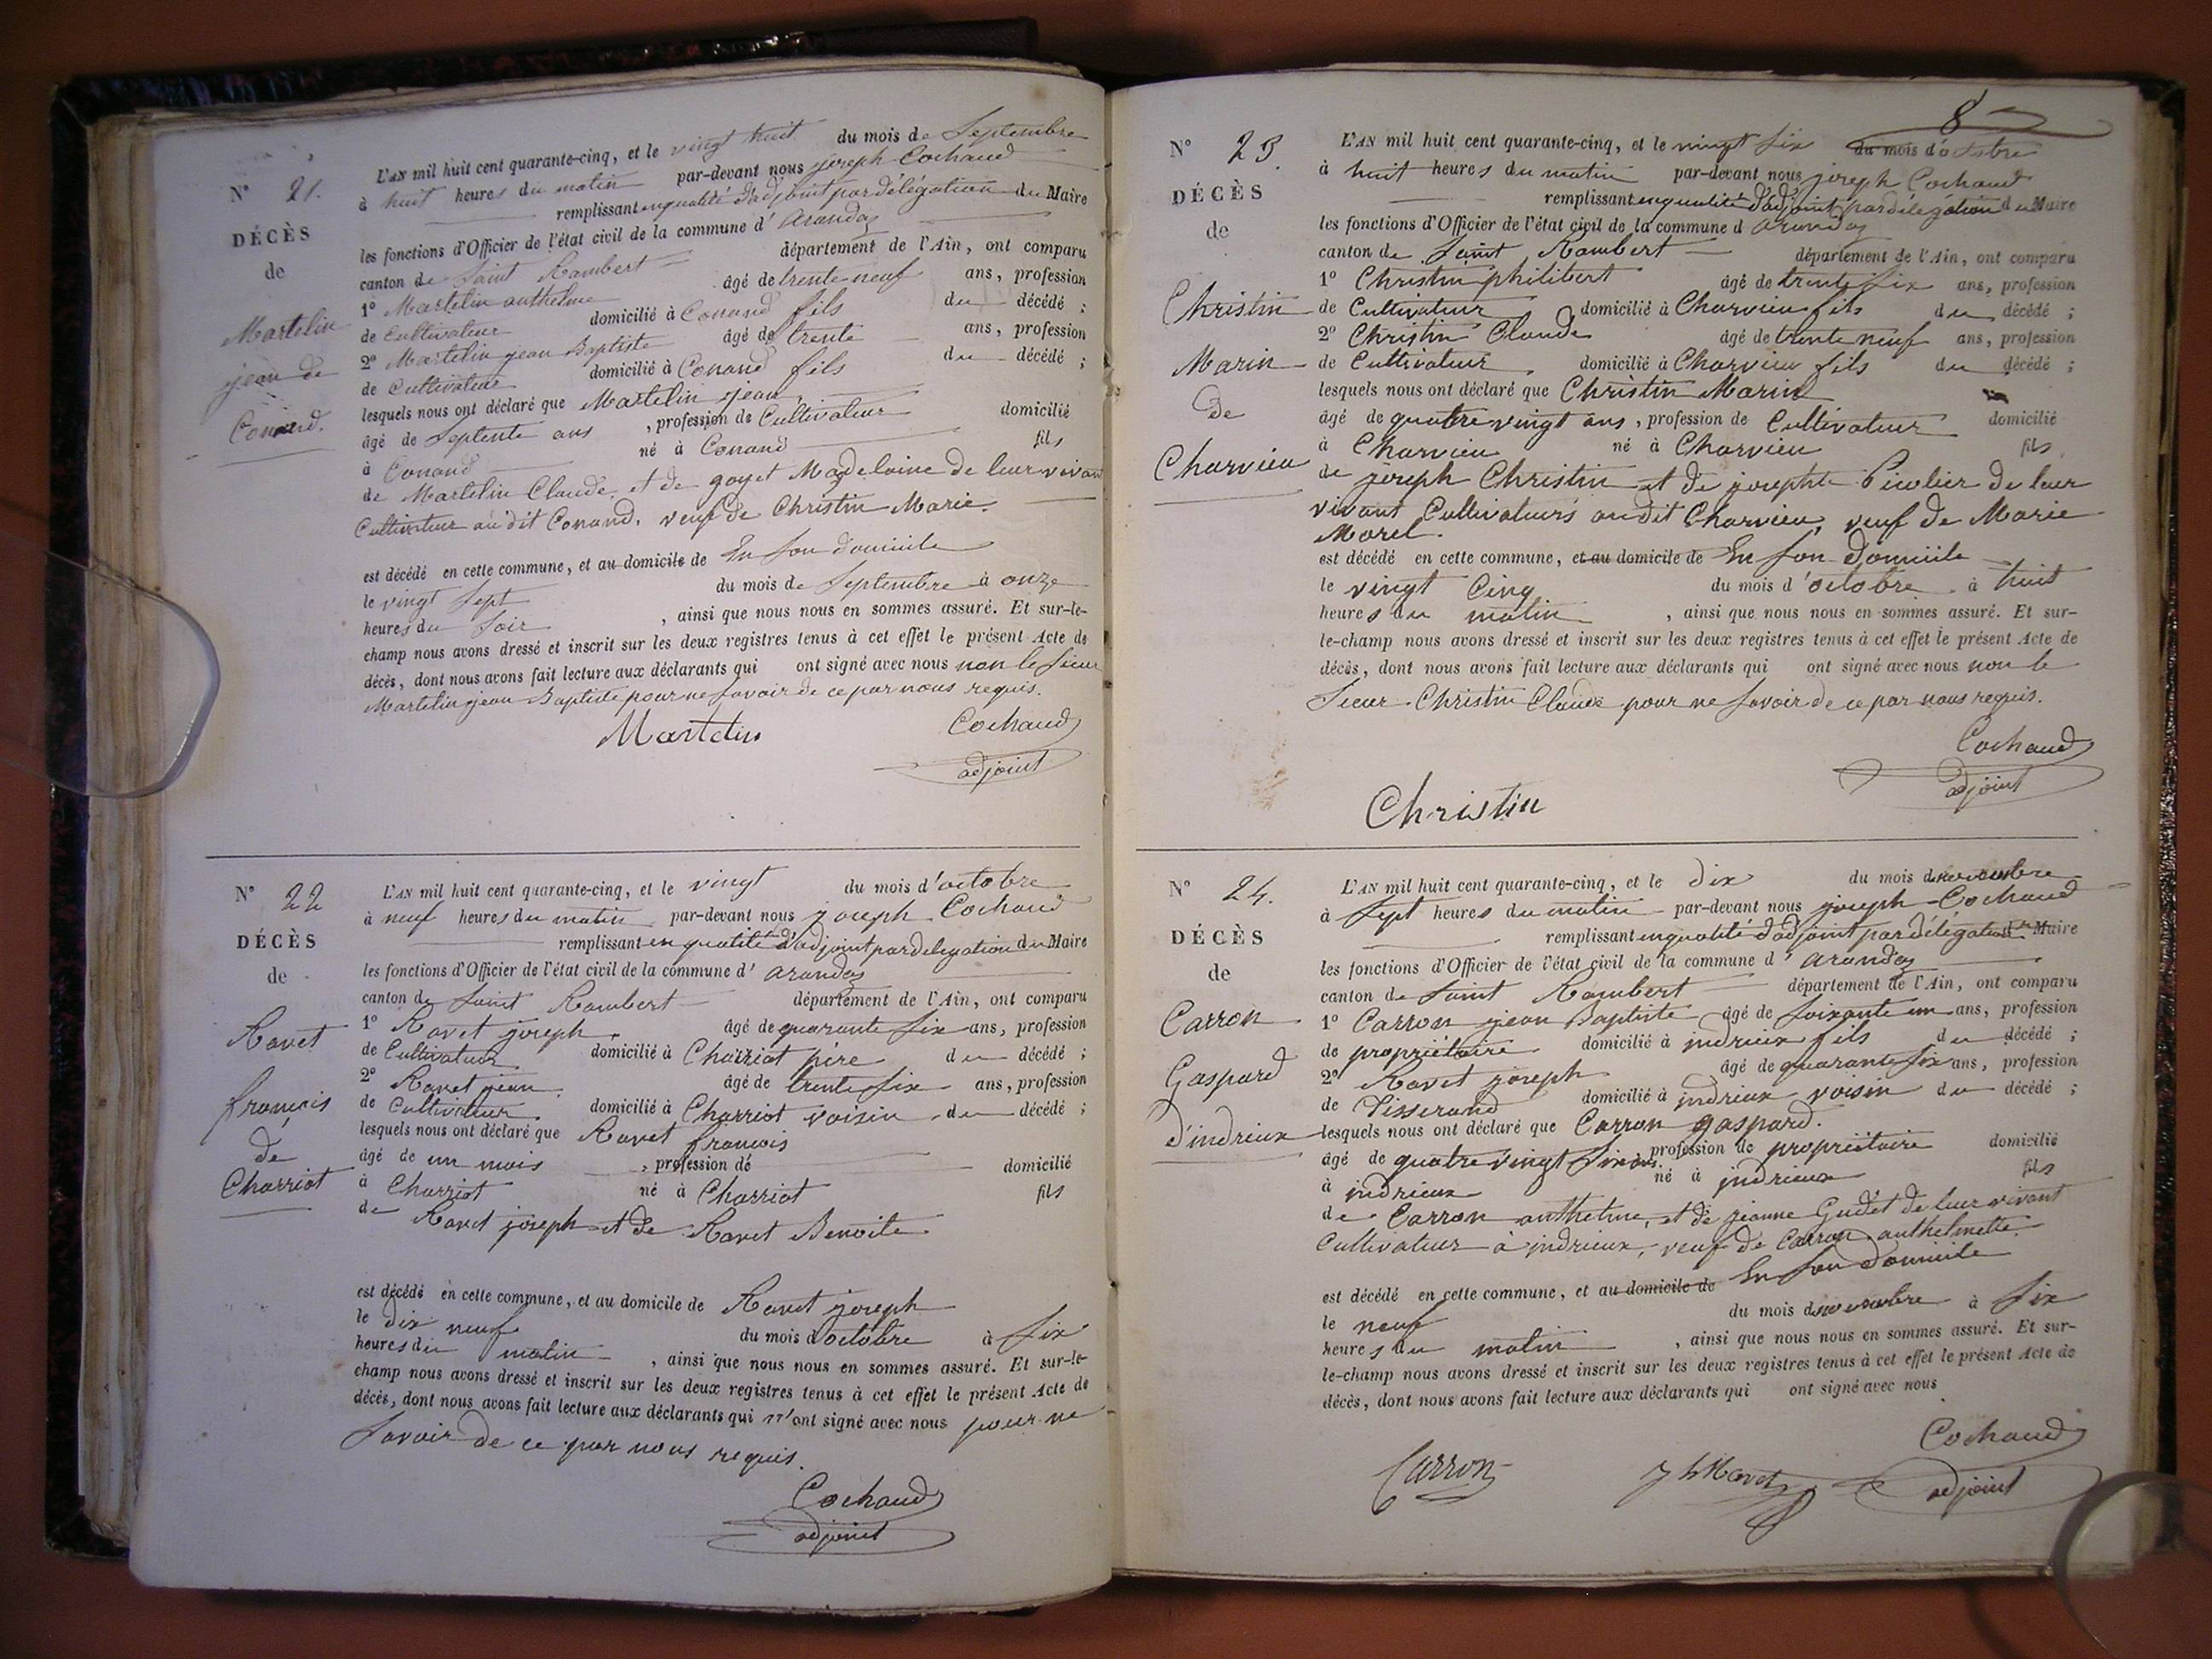 N° 21.
DÉCÈS
de
Martelin
jean de
Conand.
L'AN mil huit cent quarante-cinq, et le vingt huit du mois de Septembre
à huit heures du matin par-devant nous joseph Cochaud
remplissant en qualité d'adjoint par délégation du Maire
les fonctions d'Officier de l'état civil de la commune d' arandas
canton de Saint Rambert département de l'Ain, ont comparu
1° Martelin anthelme âgé de trente-neuf ans, profession
de Cultivateur domicilié à Conand fils du décédé ;
2° Martelin jean Baptiste âgé de trente ans, profession
de Cultivateur domicilié à Conand fils du décédé ;
lesquels nous ont déclaré que Martelin jean
âgé de Septente ans , profession de Cultivateur domicilié
à Conand né à Conand fils
de Martelin Claude, et de goyet Magdelaine de leur vivant
Cultivateur au dit Conand, veuf de Christin Marie.
est décédé en cette commune, et au domicile de En son domicile
le vingt Sept du mois de Septembre à onze
heures du Soir , ainsi que nous nous en sommes assuré. Et sur-le-
champ nous avons dressé et inscrit sur les deux registres tenus à cet effet le présent Acte de
décès, dont nous avons fait lecture aux déclarants qui ont signé avec nous non le Sieur
Martelin jean Baptiste pour ne Savoir de ce par nous requis.
Martelin Cochaud
adjoint
N° 22
DÉCÈS
de
Ravet
françois
de
Charriot
L'AN mil huit cent quarante-cinq, et le vingt du mois d'octobre
à neuf heures du matin par-devant nous joseph Cochaud
remplissant en qualité d'adjoint par delegation du Maire
les fonctions d'Officier de l'état civil de la commune d' arandas
canton de Saint Rambert département de l'Ain, ont comparu
1° Ravet joseph âgé de quarante Six ans, profession
de Cultivateur domicilié à Charriot père du décédé ;
2° Ravet jean âgé de trente Six ans, profession
de Cultivateur domicilié à Charriot voisin du décédé ;
lesquels nous ont déclaré que Ravet françois
âgé de un mois , profession de domicilié
à Charriot né à Charriot fils
de Ravet joseph et de Ravet Benoite
est décédé en cette commune, et au domicile de Ravet joseph
le dix neuf du mois d'octobre à Six
heures du matin , ainsi que nous nous en sommes assuré. Et sur-le-
champ nous avons dressé et inscrit sur les deux registres tenus à cet effet le présent Acte de
décès, dont nous avons fait lecture aux déclarants qui n'ont signé avec nous pour ne
Savoir de ce par nous requis.
Cochaud
adjoint
8
N° 23.
DÉCÈS
de
Christin
Marin
de
Charvieu
L'AN mil huit cent quarante-cinq, et le vingt Six du mois d'octobre
à huit heures du matin par-devant nous joseph Cochaud
remplissant en qualité d'adjoint par délégation du Maire
les fonctions d'Officier de l'état civil de la commune d arandas
canton de Saint Rambert département de l'Ain, ont comparu
1° Christin philibert âgé de trente Six ans, profession
de Cultivateur domicilié à Charvieu fils du décédé ;
2° Christin Claude âgé de trente neuf ans, profession
de Cultivateur, domicilié à Charvieu fils du décédé ;
lesquels nous ont déclaré que Christin Marin
âgé de quatre vingt ans, profession de Cultivateur domicilié
à Charvieu né à Charvieu fils
de joseph Christin et de josephte de leur
vivant Cultivateurs audit Charvieu, veuf de Marie
Morel.
est décédé en cette commune, et au domicile de En Son Domicile
le vingt Cinq du mois d'octobre à huit
heures du matin , ainsi que nous nous en sommes assuré. Et sur-
le-champ nous avons dressé et inscrit sur les deux registres tenus à cet effet le présent Acte de
décès, dont nous avons fait lecture aux déclarants qui ont signé avec nous non le
Sieur Christin Claude pour ne Savoir de ce par nous requis.
Cochaud
adjoint
Christin
N° 24.
DÉCÈS
de
Carron
Gaspard
d'indrieux
L'AN mil huit cent quarante-cinq, et le dix du mois de novembre
à Sept heures du matin par-devant nous joseph Cochaud
remplissant en qualité d'adjoint par délégation du Maire
les fonctions d'Officier de l'état civil de la commune d' arandas
canton de Saint Rambert département de l'Ain, ont comparu
1° Carron jean Baptiste âgé de Soixante un ans, profession
de propriétaire domicilié à indrieux fils du décédé ;
2° Ravet joseph âgé de quarante Six ans, profession
de Tisserand domicilié à indrieux voisin du décédé ;
lesquels nous ont déclaré que Carron gaspard.
âgé de quatre vingt Six ans. profession de propriétaire domicilié
à indrieux né à indrieux fils
de Carron anthelme, et de jeanne Gudet de leur vivant
Cultivateur à indrieux, veuf de Carron anthelmette.
est décédé en cette commune, et au domicile de En Son Domicile
le neuf du mois de novembre à Six
heures du matin , ainsi que nous nous en sommes assuré. Et sur-
le-champ nous avons dressé et inscrit sur les deux registres tenus à cet effet le présent Acte de
décès, dont nous avons fait lecture aux déclarants qui ont signé avec nous
Cochaud
Carron jh Ravet adjoint